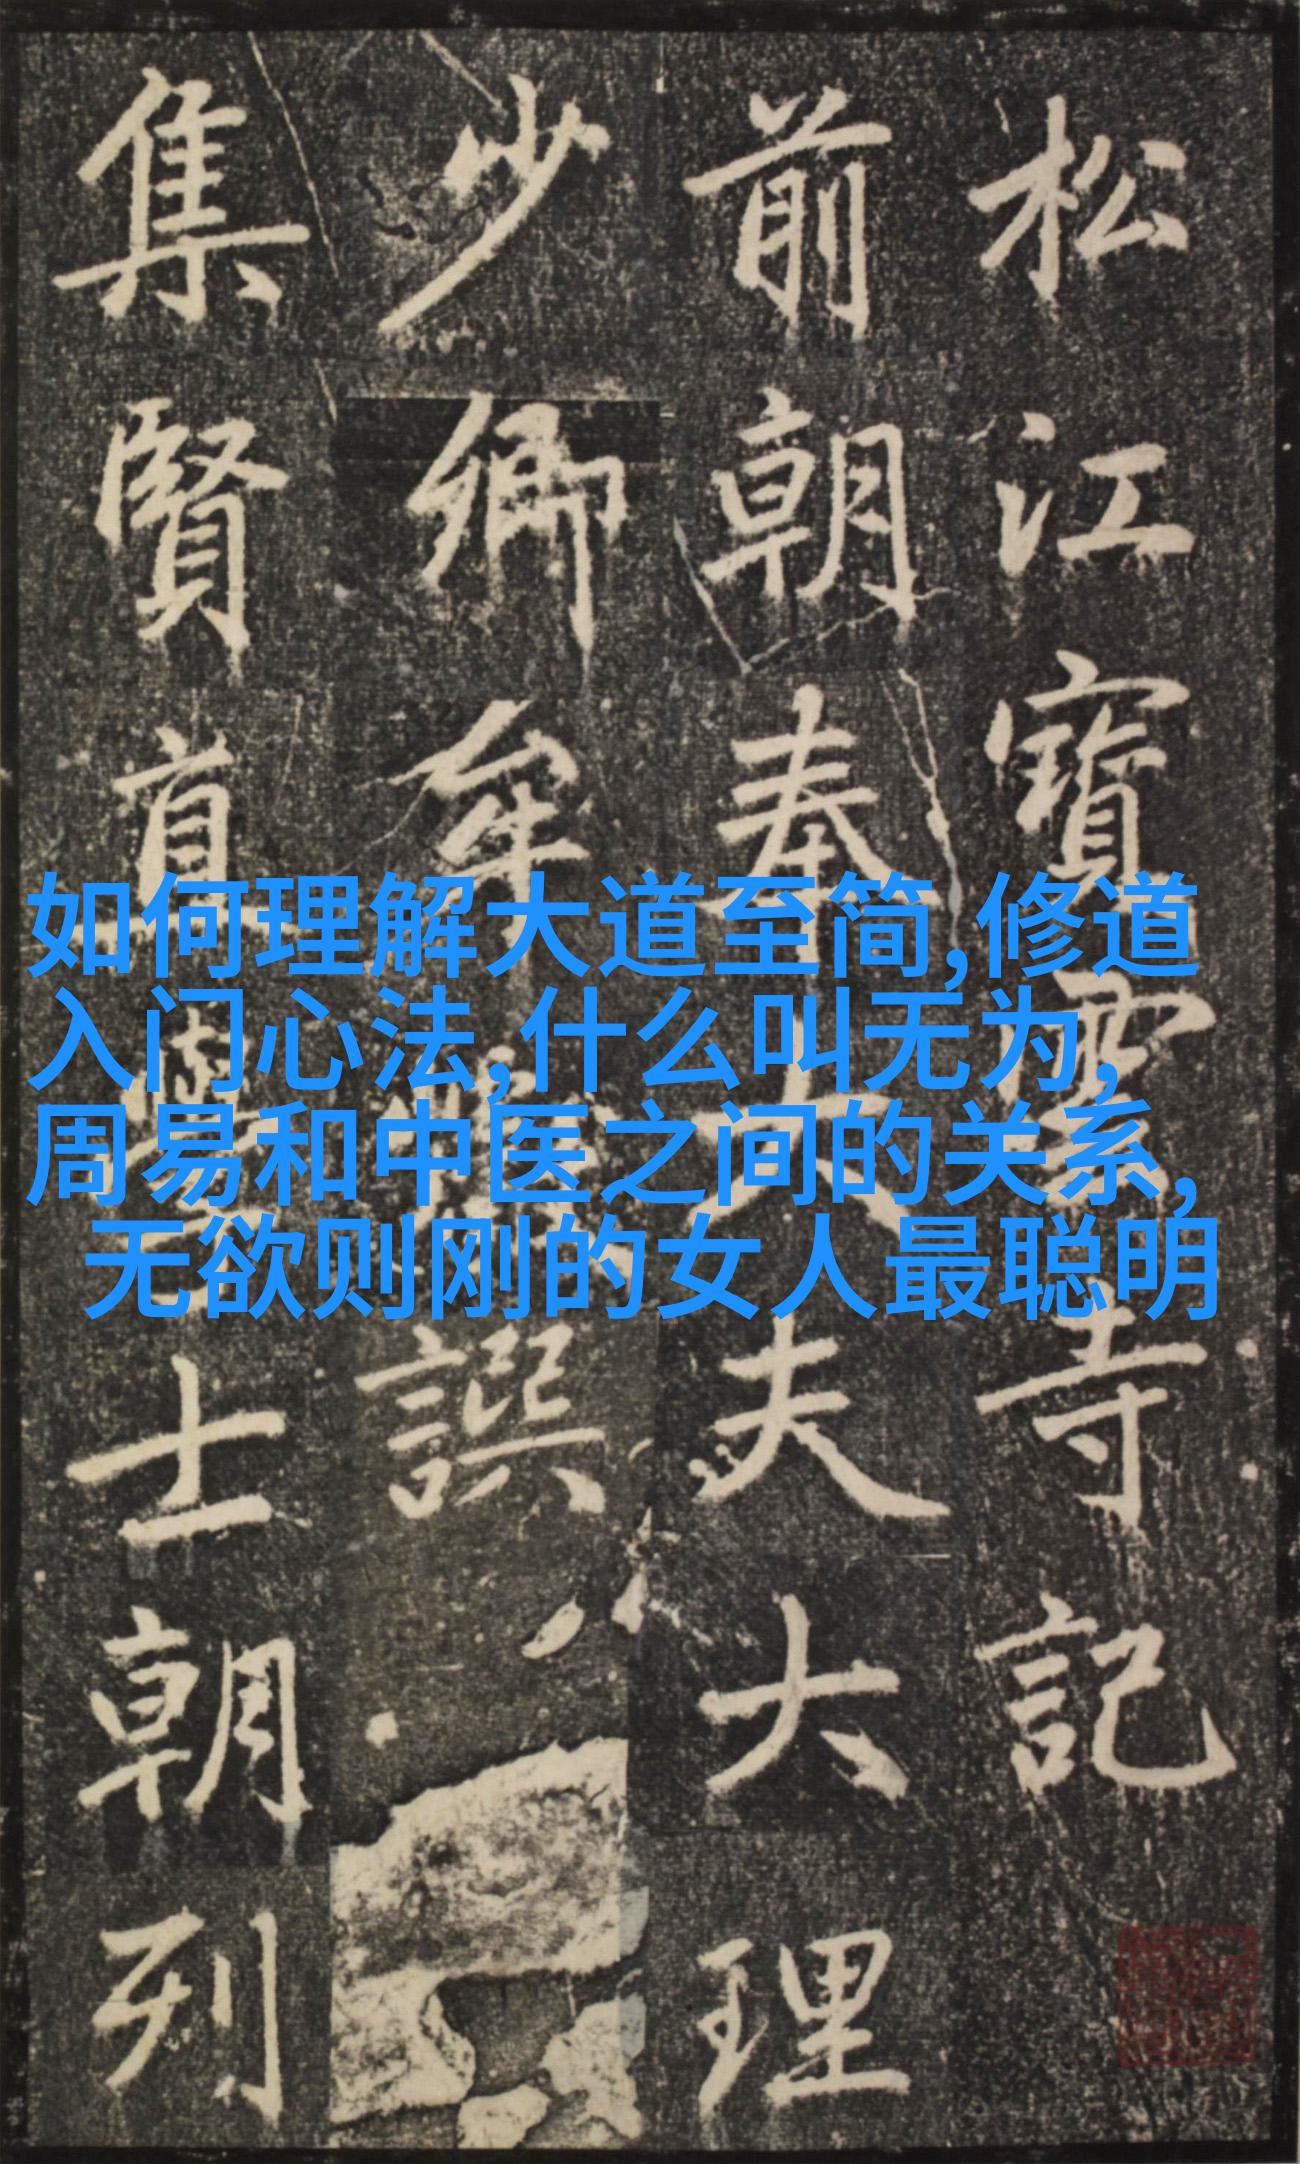 松江寶雲寺記
前朝奉大夫大理
少卿牟巘譔
集賢直學士朝列
如何理解大道至简,修道
入门心法,什么叫无为,
周易和中医之间的关系,
无欲则刚的女人最聪明